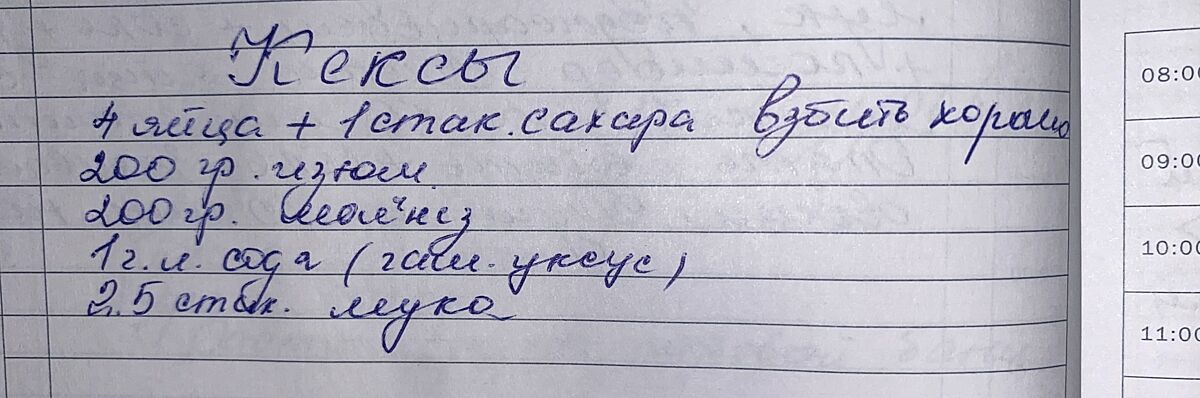 Кексы
4 яйца + 1 стак. сахара взбить хорошо
200 гр. изюм.
200 гр. май-нез
1 ч. л. сода (гаш. уксус)
2.5 стак. мука
08:00
09:00
10:00
11:00